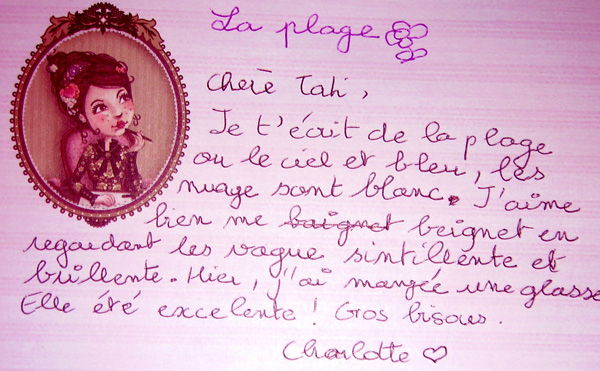 La plage
Cherè Tati,
Je t'écrit de la plage
ou le ciel et bleu, les
nuage sont blanc. J'aime
bien me baignet beignet en
regardant les vague sintillente et
brillente. Hier, j'ai mangée une glasse
Elle été excelente ! Gros bisous.
Charlotte ♡